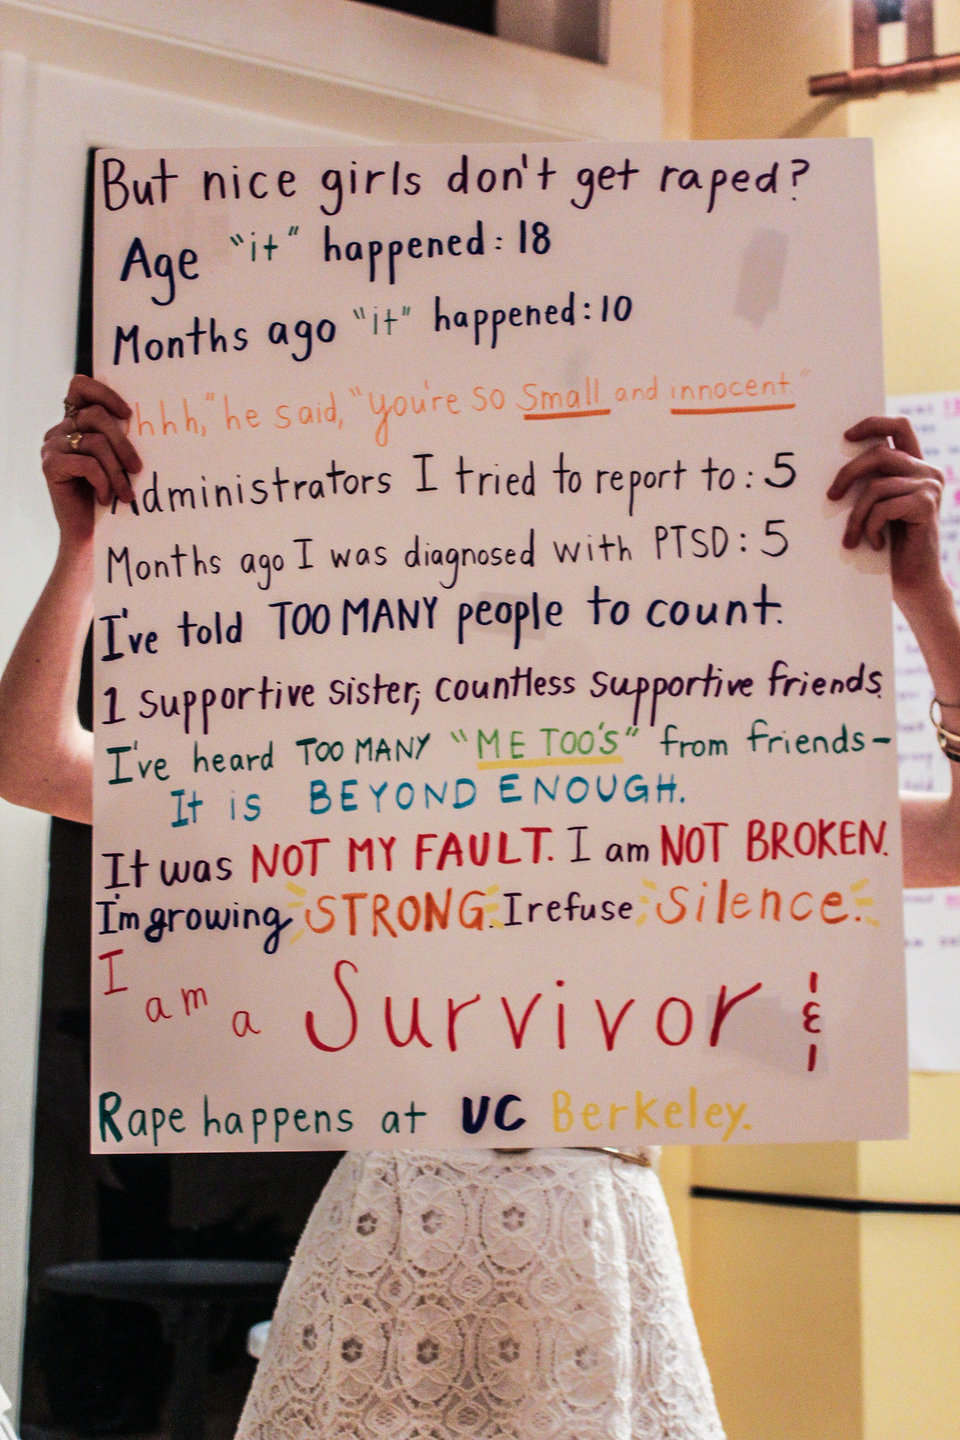 But nice girls don't get raped?
Age "it" happened: 18
Months ago "it" happened: 10
hhh," he said, "you're so small and innocent."
Administrators I tried to report to: 5
Months ago I was diagnosed with PTSD: 5
I've told TOO MANY people to count.
1 supportive sister, countless supportive friends.
I've heard TOO MANY "ME TOO'S" from friends-
It is BEYOND ENOUGH.
It was NOT MY FAULT. I am NOT BROKEN.
I'm growing STRONG. I refuse silence.
I am a Survivor &
Rape happens at UC Berkeley.